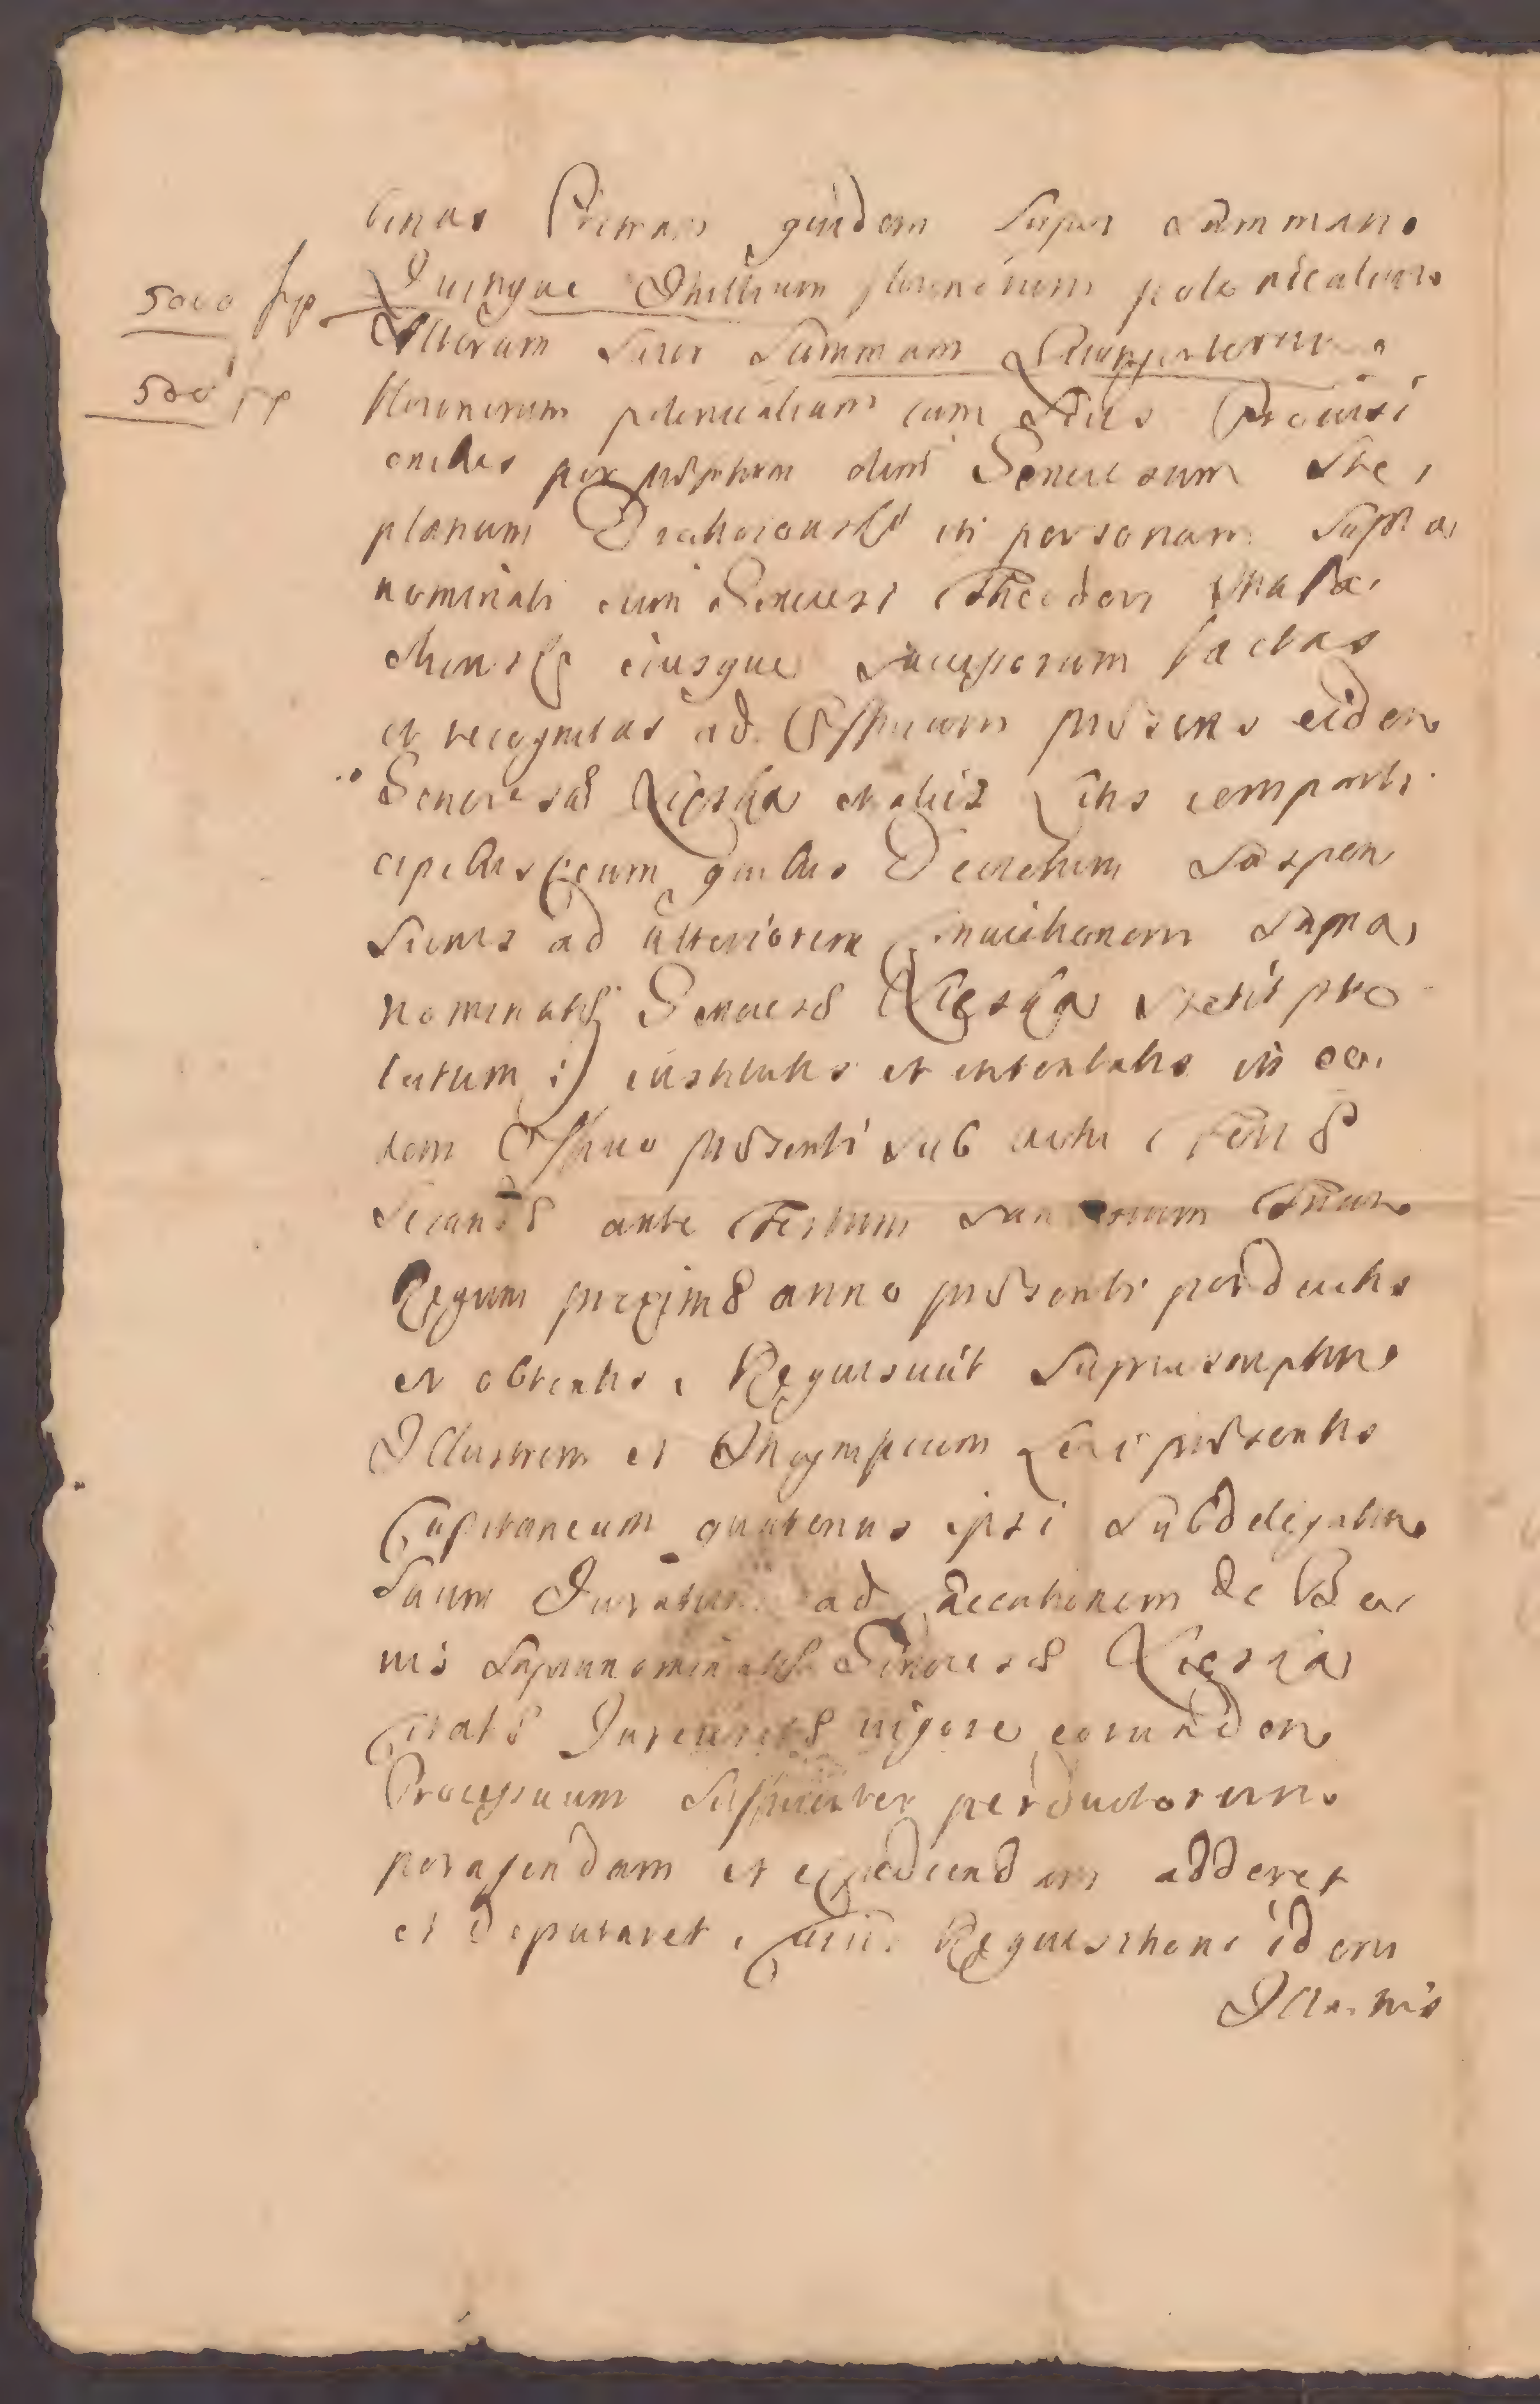 binas Primam quidem super summam
5000 fp. Quinque Millium florenorum polonicalium
Alteram super Summam Quingentorum
500 fp florenorum polonicalium cum suis Provisi
onibus per olim Generosum Ste,
phanum in personam supra
nominati cum Generosi Theodori
eiusque Successorum factas
et recognitas ad Officium præsens eidem
Generosæ et aliis Litis comparti
cipibus (cum quibus Decretum Suspen
sionis ad ulteriorem supra,
nominatæ Generosæ stetit pro
latum :) institutis et intentatis in eo,
dem Officio præsenti sub actu Feriæ
Secundæ ante Festum Sanctorum Trium
Regum proximæ anno præsenti perductis
et obtentis, Requisivit suprascriptum
Illustrem et Magnificum Loci præsentis
Capitaneum quatenus ipsi Subdelegatum
suum Juratum ad executionem de Bo,
nis supranominatæ Generosæ
Citatæ vigore eorundem
Processuum sufficienter perductorum
peragendam et expediendam adderet
et deputaret, Requisitioni idem
Illustris